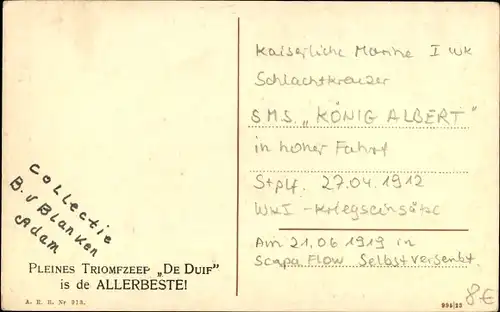 Collectie
B. v Blanken
Adam
PLEINES TRIOMFZEEP „DE DUIF"
is de ALLERBESTE!
A. E. H. Nr 213.
Kaiserliche Marine I WK
Schlachtkreuzer
S.M.S. „KÖNIG ALBERT"
in hoher Fahrt
Stplf. 27.04.1912
WKI - Kriegseinsätze
Am 21.06 1919 in
Scapa Flow Selbstversenkt.
8€